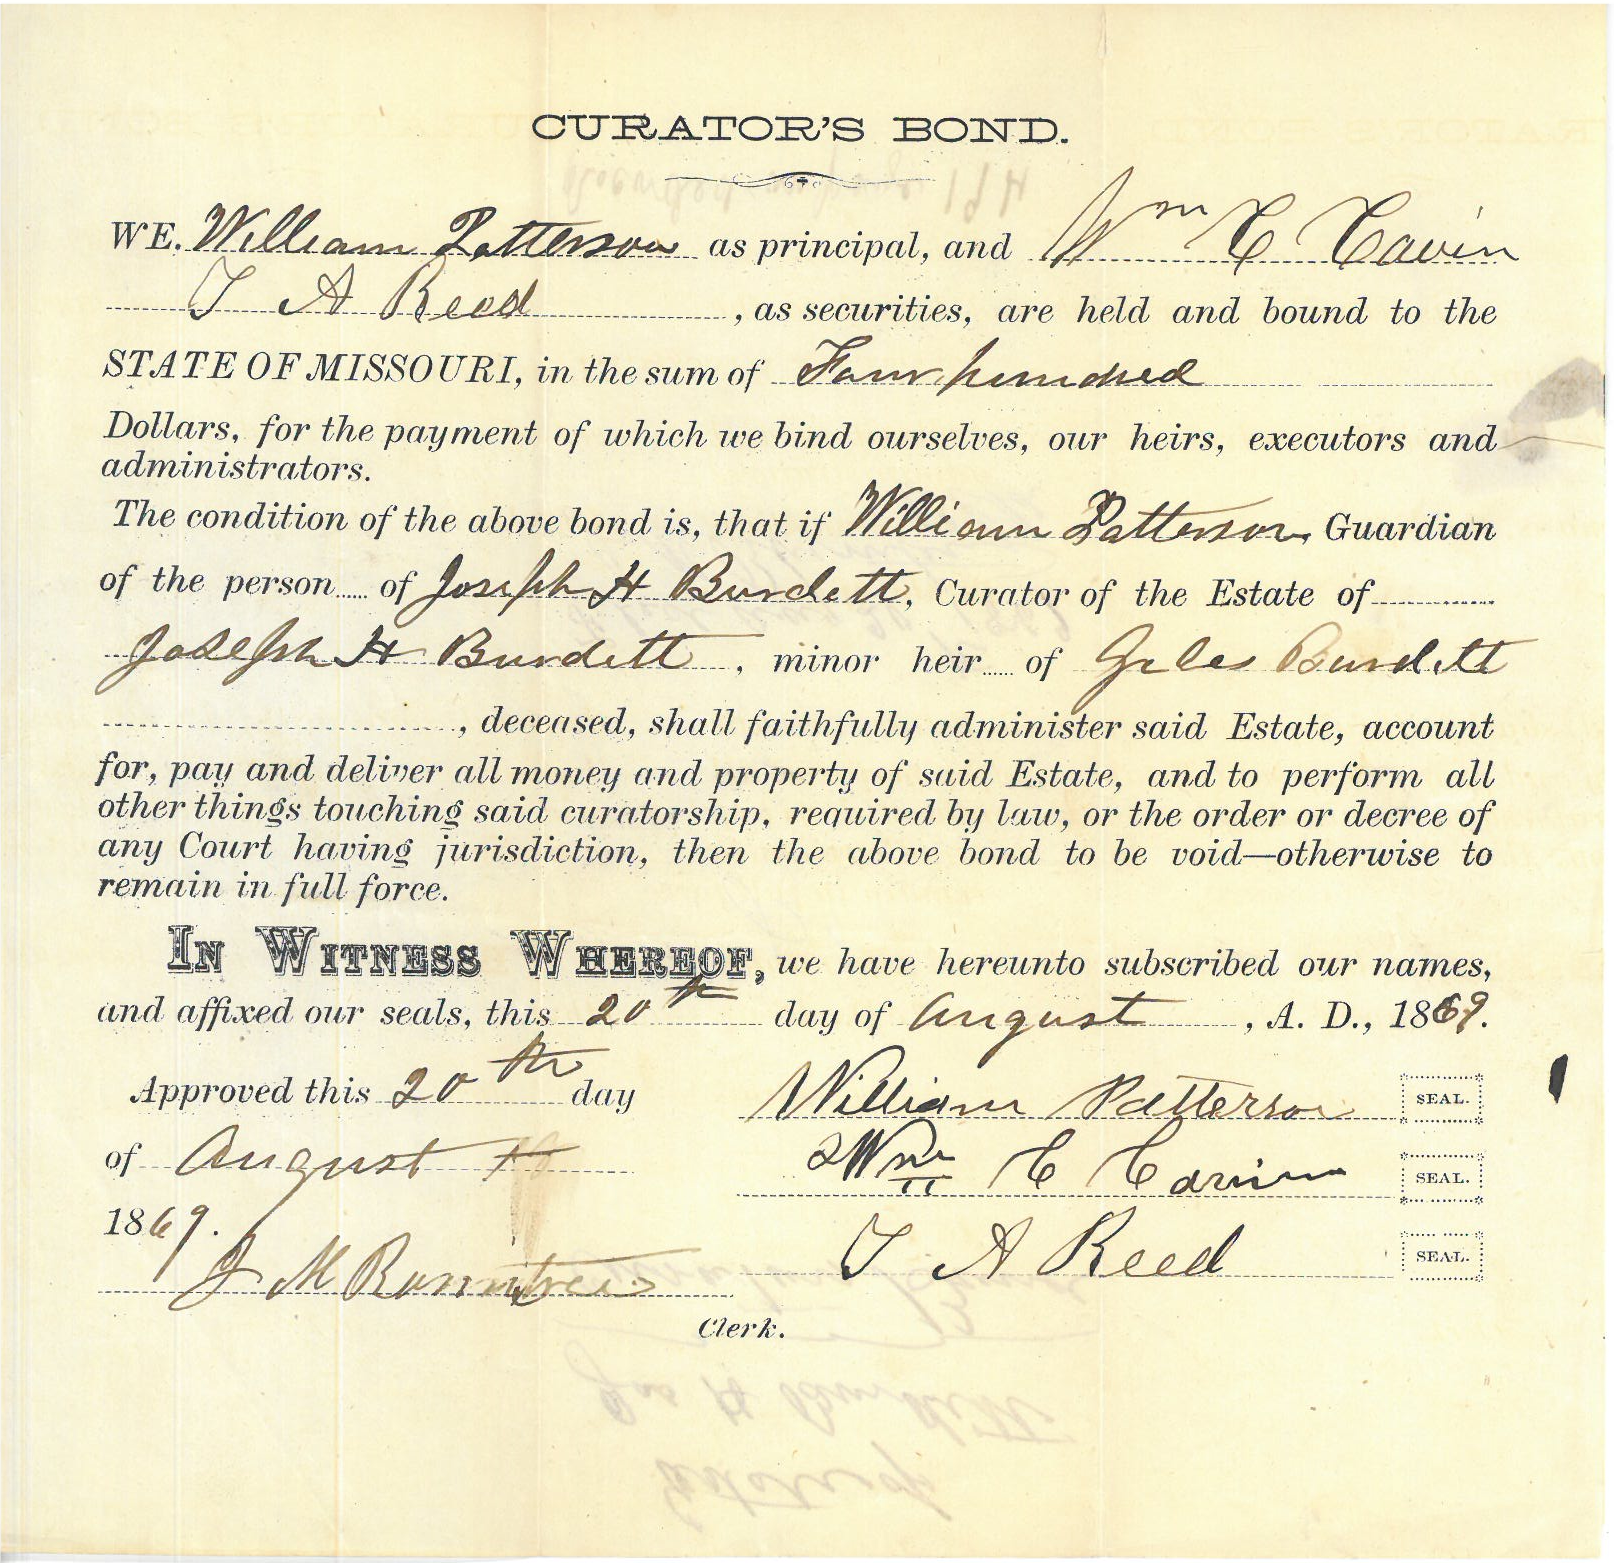 CURATOR'S BOND.
WE, William Patterson as principal, and Wm C Cavin
T A Reed , as securities, are held and bound to the
STATE OF MISSOURI, in the sum of Four hundred
Dollars, for the payment of which we bind ourselves, our heirs, executors and
administrators.
The condition of the above bond is, that if William Patterson, Guardian
of the person of Joseph H Burdett, Curator of the Estate of
Joseph H Burdett , minor heir of Giles Burdett
, deceased, shall faithfully administer said Estate, account
for, pay and deliver all money and property of said Estate, and to perform all
other things touching said curatorship, required by law, or the order or decree of
any Court having jurisdiction, then the above bond to be void—otherwise to
remain in full force.
IN WITNESS WHEREOF, we have hereunto subscribed our names,
and affixed our seals, this 20th day of August , A. D., 1869.
Approved this 20th day
of August
1869.
J M Rountree
Clerk.
William Patterson SEAL.
Wm C Cavin SEAL.
T A Reed SEAL.